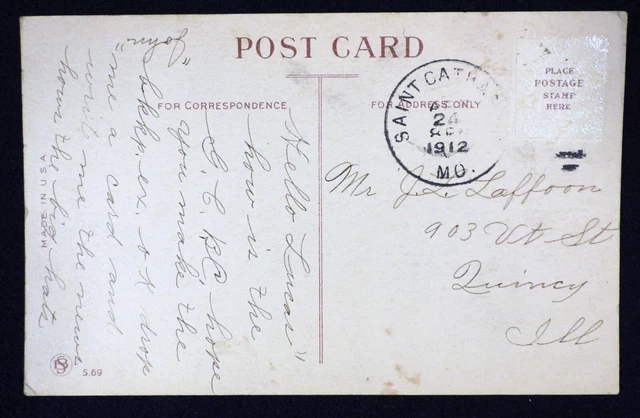 POST CARD
FOR CORRESPONDENCE
FOR ADDRESS ONLY
PLACE
POSTAGE
STAMP
HERE
SAINT CATHA
24
1912
MO.
Mr J. L. Laffoon
903 Vt St
Quincy
Ill
Hello Lucas"
how is the
G. C. B.C. hope
you make the
bkkp. ex. o K drop
me a card and
write me the news
how the big hats
"John"
MADE IN U.S.A
S.69